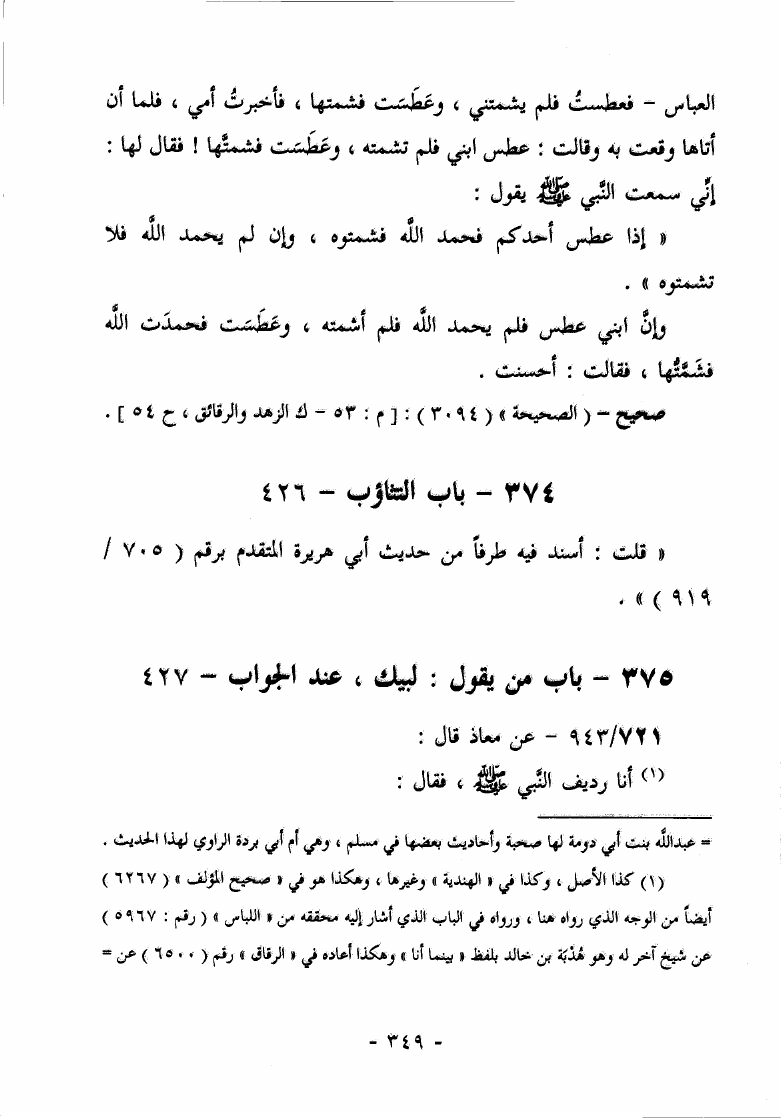 العباس – فعطستُ فلم يشمتني ، وعَطَسَت فشمتها ، فأخبرتُ أمي ، فلما أن
أتاها وقعت به وقالت : عطس ابني فلم تشمته ، وعَطَسَت فشمتَّها ! فقال لها :
إنِّي سمعت النَّبي ﷺ يقول :
« إذا عطس أحدكم فحمد الله فشمتوه ، وإن لم يحمد الله فلا
تشمتوه » .
وإنَّ ابني عطس فلم يحمد الله فلم أشمته ، وعَطَسَت فحمدَت الله
فشَمَّتُّها ، فقالت : أحسنت .
صحيح – ( الصحيحة » ( ٣٠٩٤ ) : [ م : ٥٣ – ك الزهد والرقائق ، ح ٥٤ ] .
٣٧٤ – باب التثاؤب – ٤٢٦
« قلت : أسند فيه طرفاً من حديث أبي هريرة المتقدم برقم ( ٧٠٥ /
٩١٩ ) » .
٣٧٥ – باب من يقول : لبيك ، عند الجواب – ٤٢٧
٩٤٣/٧٢١ – عن معاذ قال :
(١) أنا رديف النَّبي ﷺ ، فقال :
= عبدالله بنت أبي دومة لها صحبة وأحاديث بعضها في مسلم ، وهي أم أبي بردة الراوي لهذا الحديث .
(١) كذا الأصل ، وكذا في « الهندية » وغيرها ، وهكذا هو في « صحيح المؤلف » ( ٦٢٦٧ )
أيضاً من الوجه الذي رواه هنا ، ورواه في الباب الذي أشار إليه محققه من « اللباس » ( رقم : ٥٩٦٧ )
عن شيخ آخر له وهو هُدْبَة بن خالد بلفظ « بينما أنا » وهكذا أعاده في « الرقاق » رقم ( ٦٥٠٠ ) عن =
- ٣٤٩ -